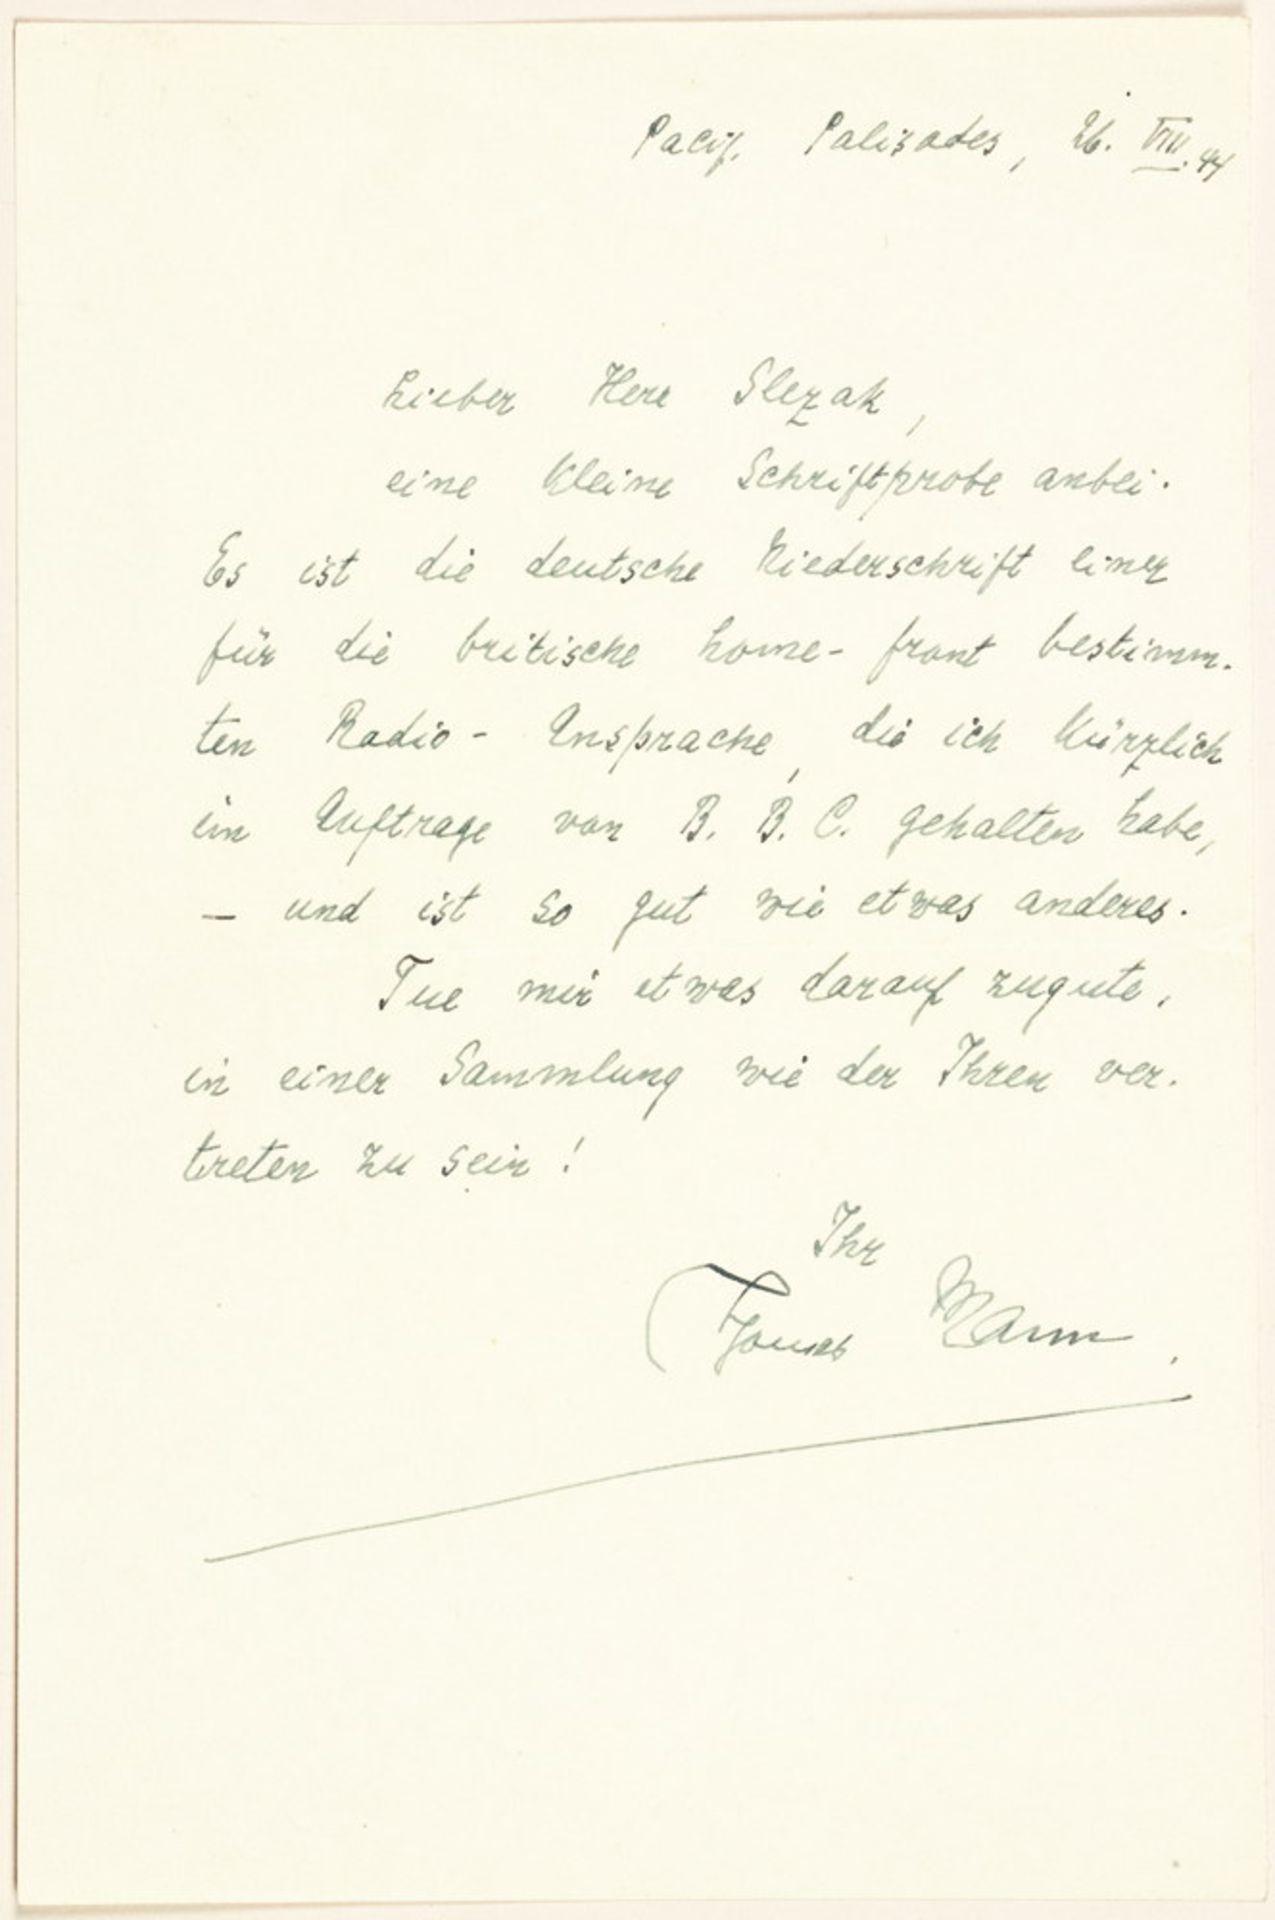 Pacif. Palisades, 26. VIII. 44
Lieber Herr Slezak,
eine kleine Schriftprobe anbei.
Es ist die deutsche Niederschrift einer
für die britische home-front bestimm-
ten Radio-Ansprache, die ich kürzlich
im Auftrage von B. B. C. gehalten habe,
— und ist so gut wie etwas anderes.
Tue mir etwas darauf zugute,
in einer Sammlung wie der Ihren ver-
treten zu sein!
Ihr
Thomas Mann.